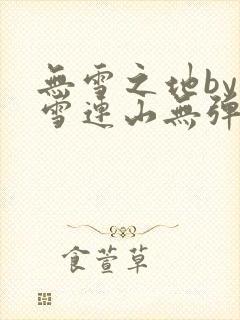 無雪之地by
雪連山無彈
食萱草